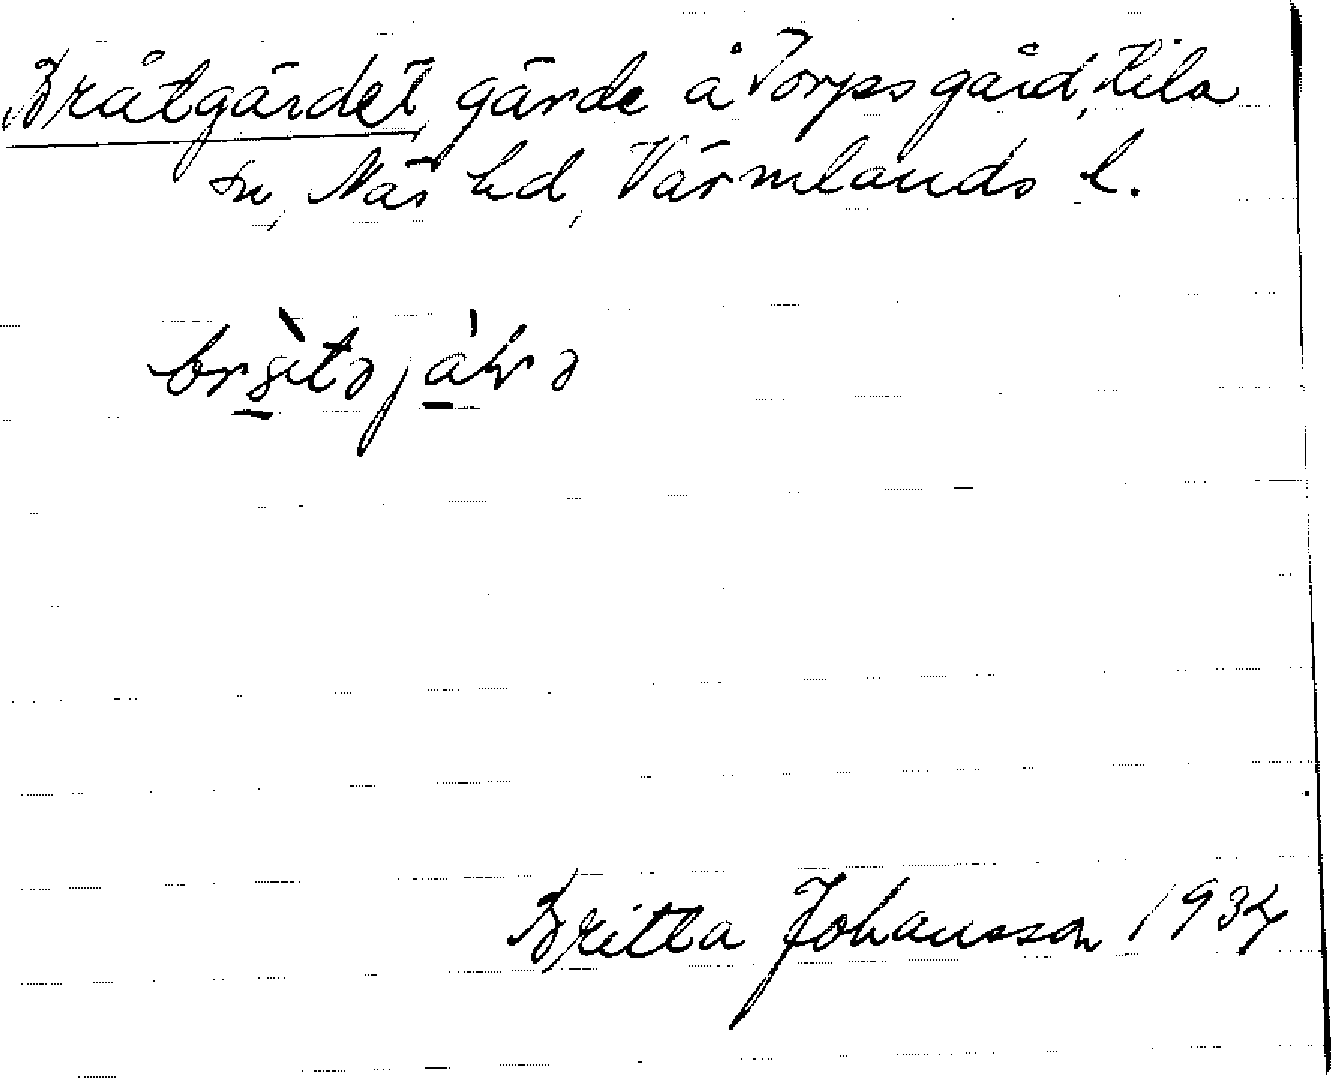 Bråtgärdet, gärde å Torpsgård, Kila
sn, Näs hd, Värmlands l.
Britta Johansson 1934